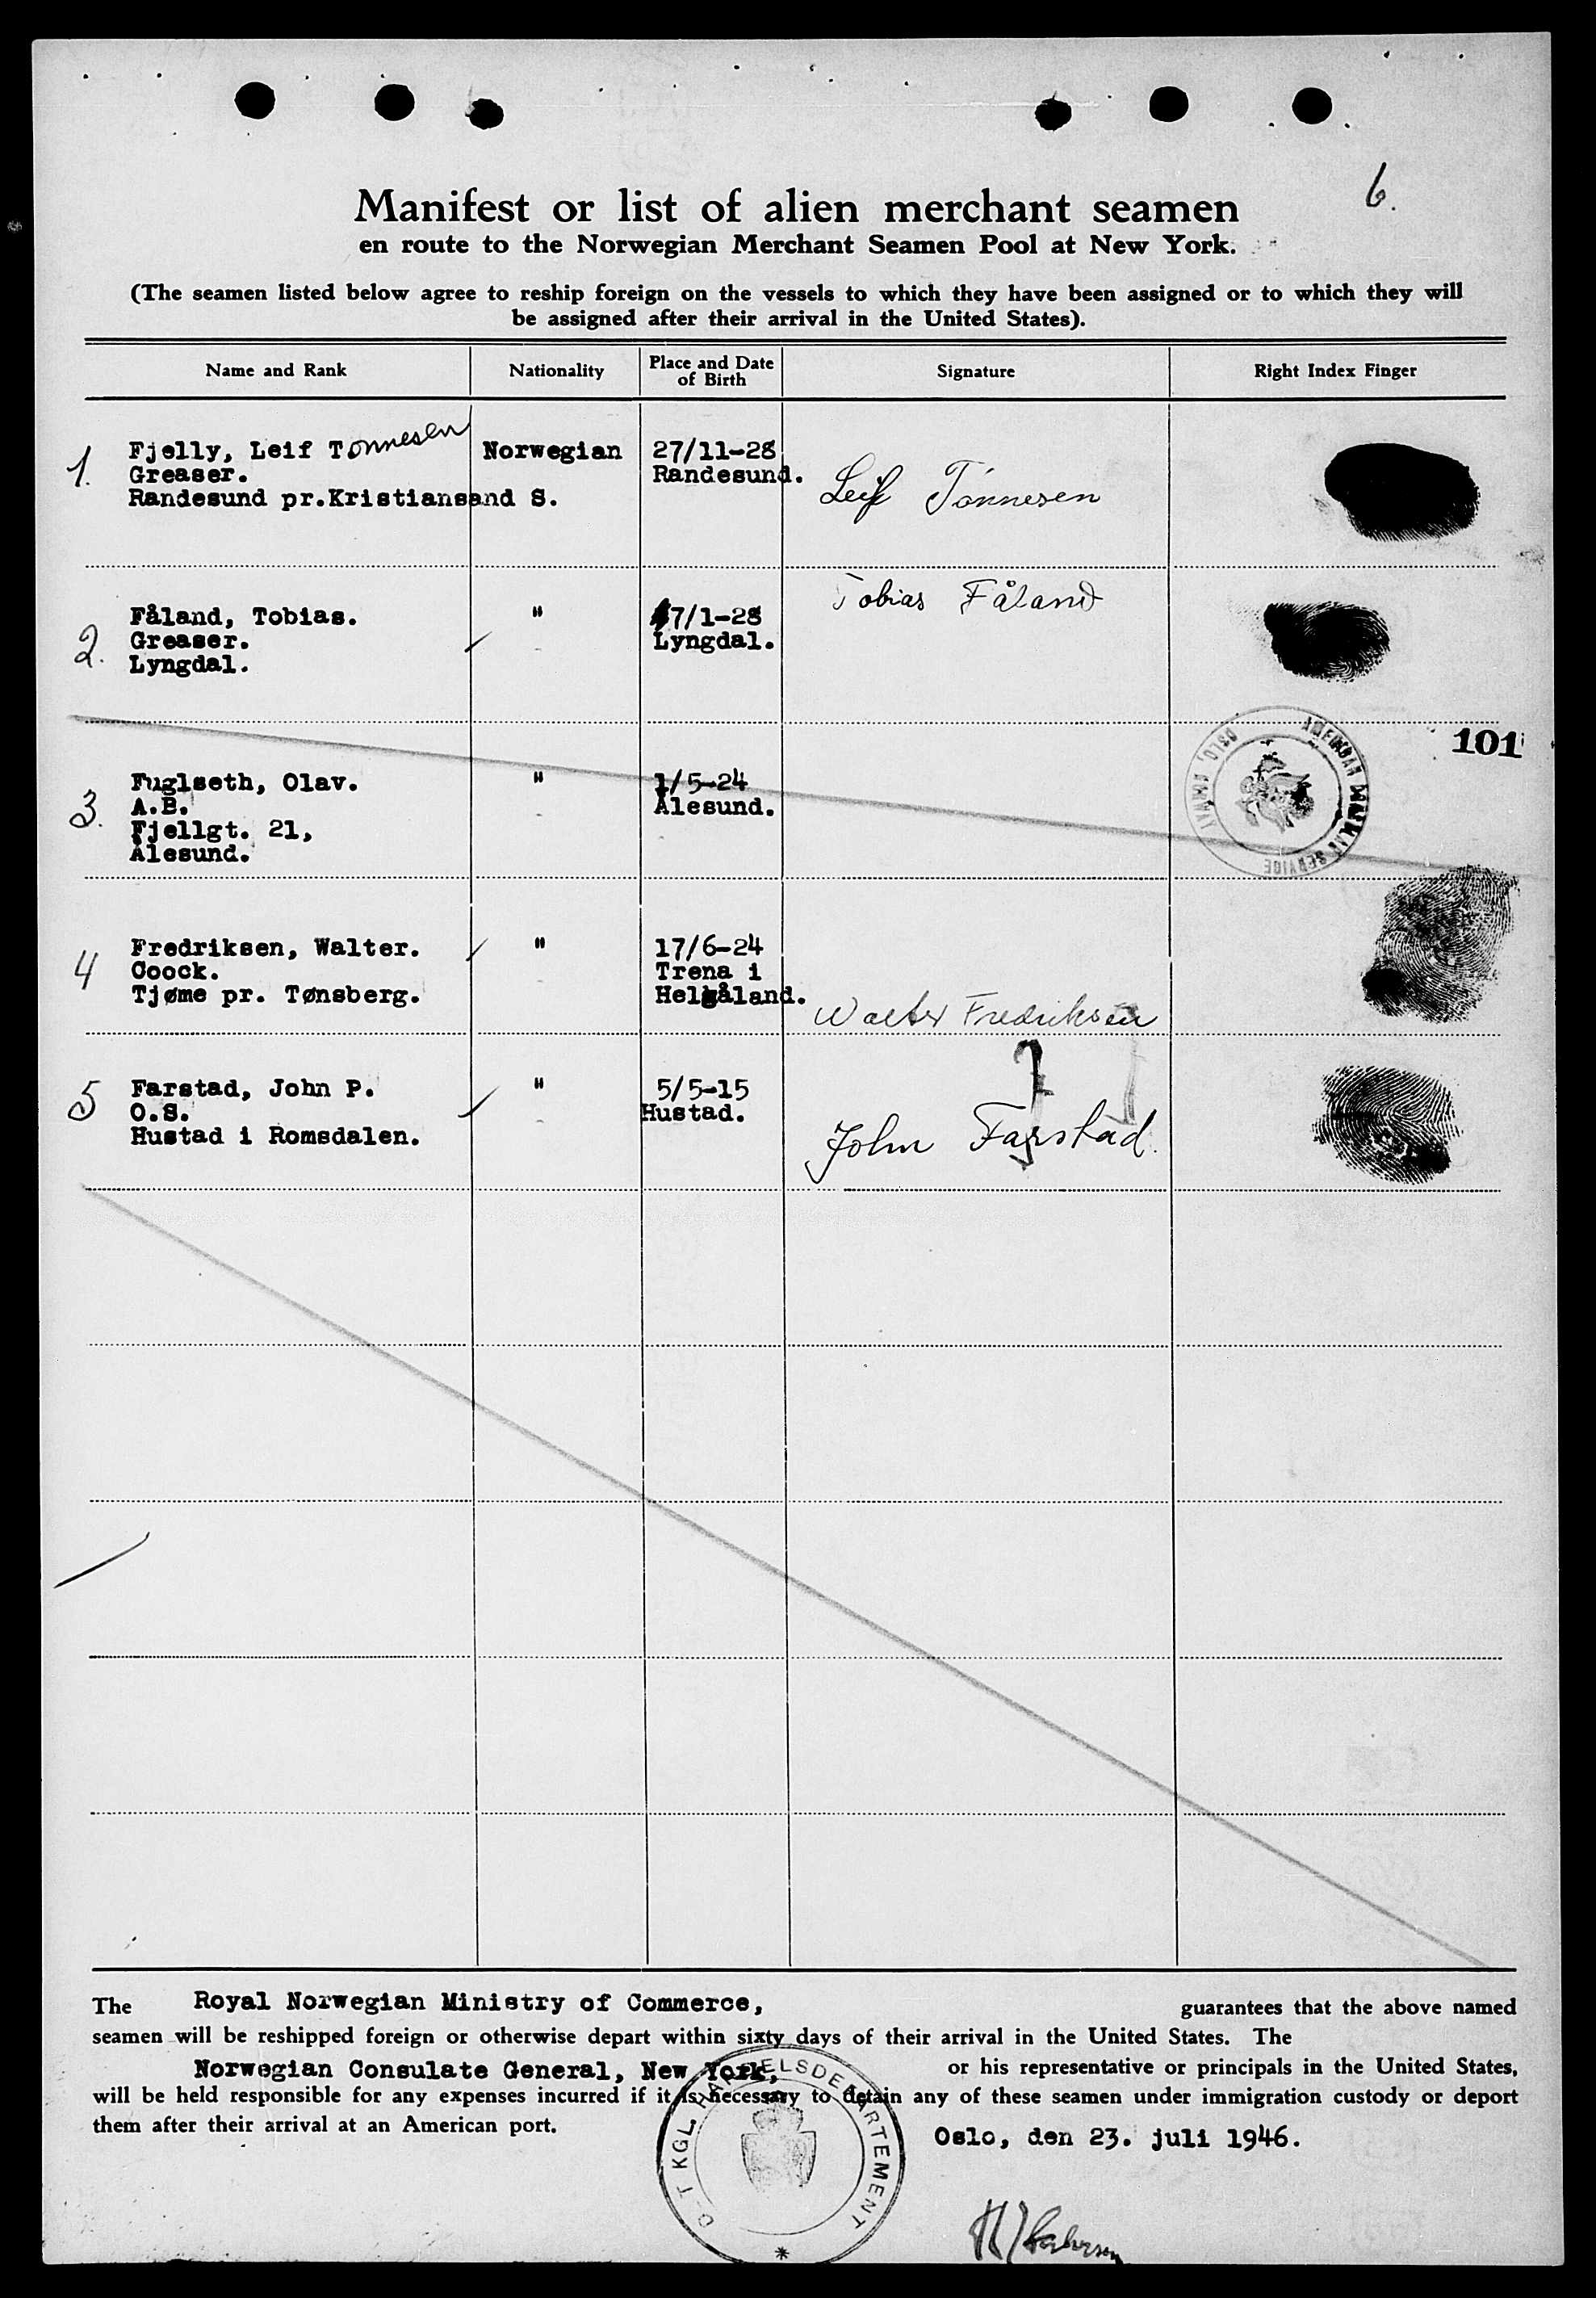 6.
Manifest or list of alien merchant seamen
en route to the Norwegian Merchant Seamen Pool at New York.
(The seamen listed below agree to reship foreign on the vessels to which they have been assigned or to which they will
be assigned after their arrival in the United States).
Name and Rank Nationality Place and Date of Birth Signature Right Index Finger
1. Fjelly, Leif Tønnesen Norwegian 27/11-28
Greaser. Randesund.
Randesund pr.Kristiansand S.
Leif Tönnesen
Tobias Fåland
2. Fåland, Tobias. " 7/1-28
Greaser. Lyngdal.
Lyngdal.
AMERICAN SERVICE OSLO, NORWAY
101
3. Fuglseth, Olav. " 1/5-24
A.B. Ålesund.
Fjellgt. 21,
Ålesund.
4 Fredriksen, Walter. " 17/6-24
Coock. Trena i
Tjøme pr. Tønsberg. Helgåland.
Walter Fredriksen
5 Farstad, John P. " 5/5-15
O.S. Hustad.
Hustad i Romsdalen.
John Farstad.
The Royal Norwegian Ministry of Commerce, guarantees that the above named
seamen will be reshipped foreign or otherwise depart within sixty days of their arrival in the United States. The
Norwegian Consulate General, New York, or his representative or principals in the United States,
will be held responsible for any expenses incurred if it is necessary to detain any of these seamen under immigration custody or deport
them after their arrival at an American port.
Oslo, den 23. juli 1946.
DET KGL. HANDELSDEPARTEMENT